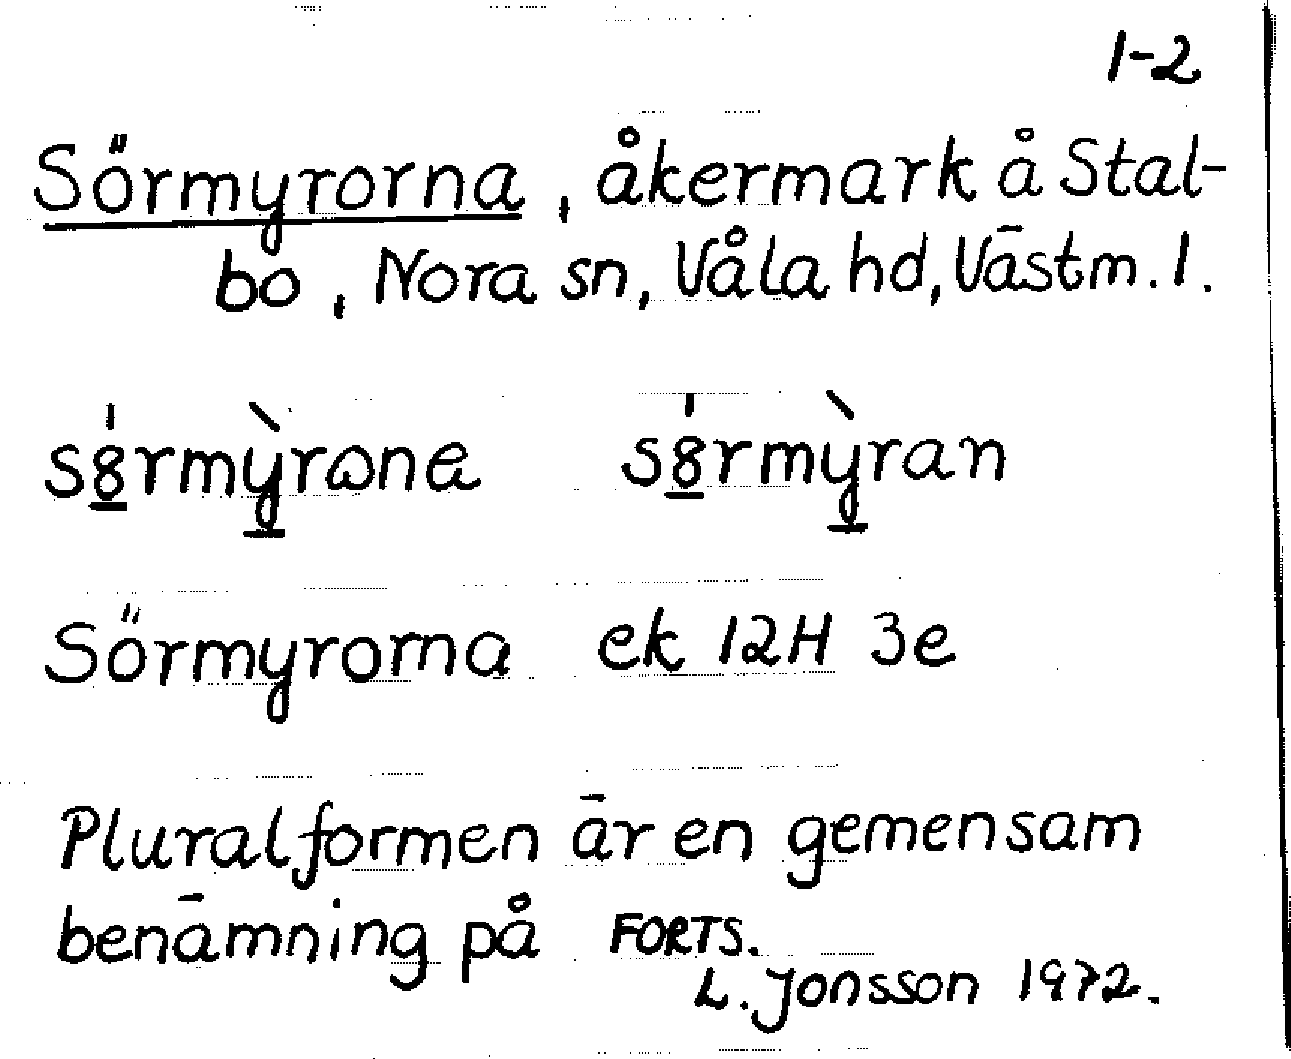 1-2
Sörmyrorna, åkermark å Stal-
bo, Nora sn, Våla hd, Västm. l.
sörmyrorna ek 12H 3e
Pluralformen är en gemensam
benämning på FORTS.
L. Jonsson 1972.